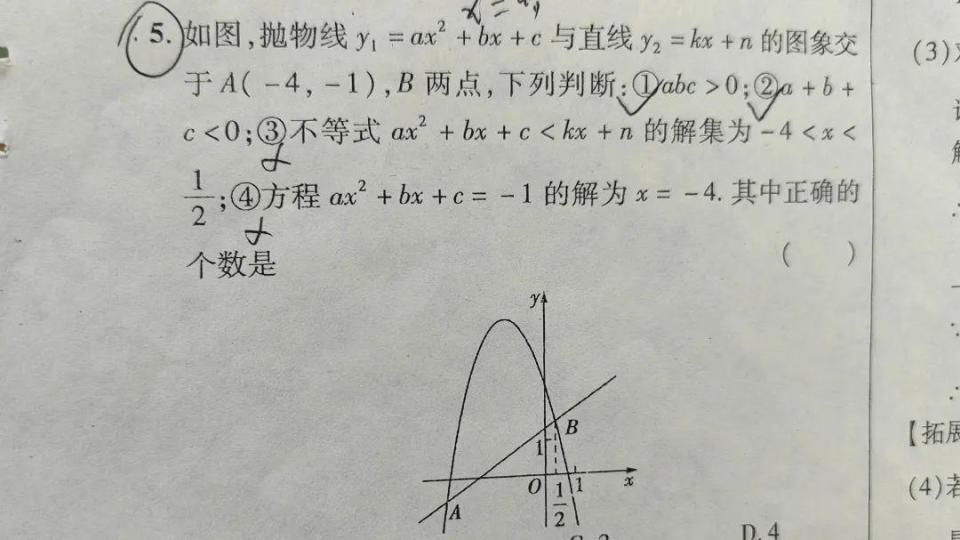 5. 如图,抛物线 y₁ = ax² + bx + c 与直线 y₂ = kx + n 的图象交
于 A( -4, -1), B 两点,下列判断:①abc > 0;②a + b +
c < 0;③不等式 ax² + bx + c < kx + n 的解集为 -4 < x <
1/2;④方程 ax² + bx + c = -1 的解为 x = -4. 其中正确的
个数是 ( )
y
B
1
O 1/2 1 x
A
D. 4
(3)
【拓展
(4)若